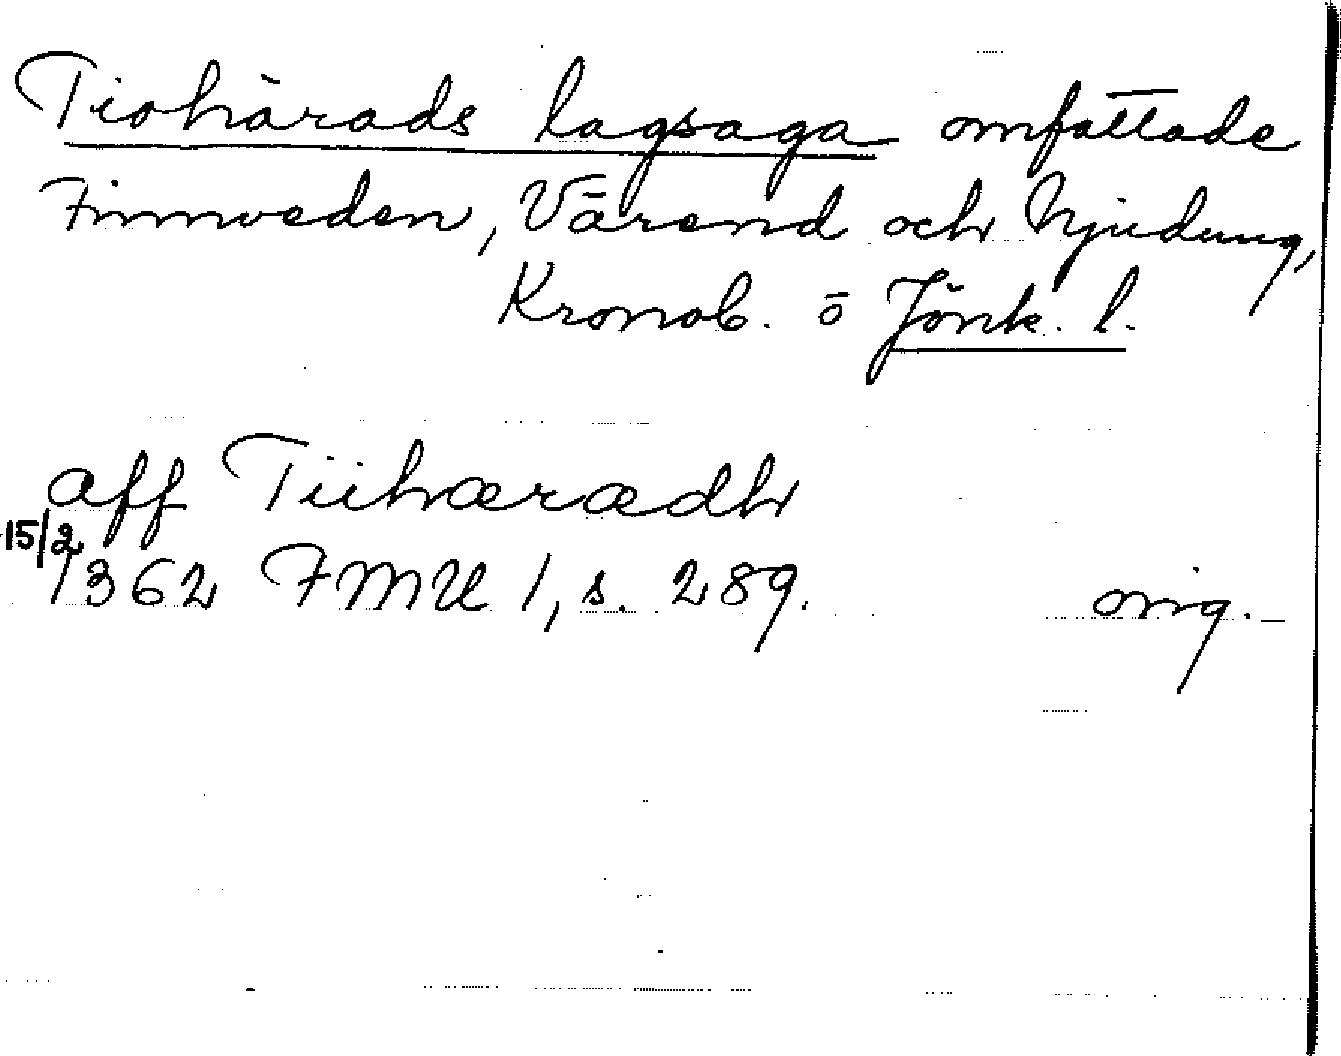 Tiohärads lagsaga omfattade
Finnveden, Värend och Njudung,
Kronob. o Jönk. l.
aff Tiihærædh
15/2
1362 FMU 1, s. 289. orig.